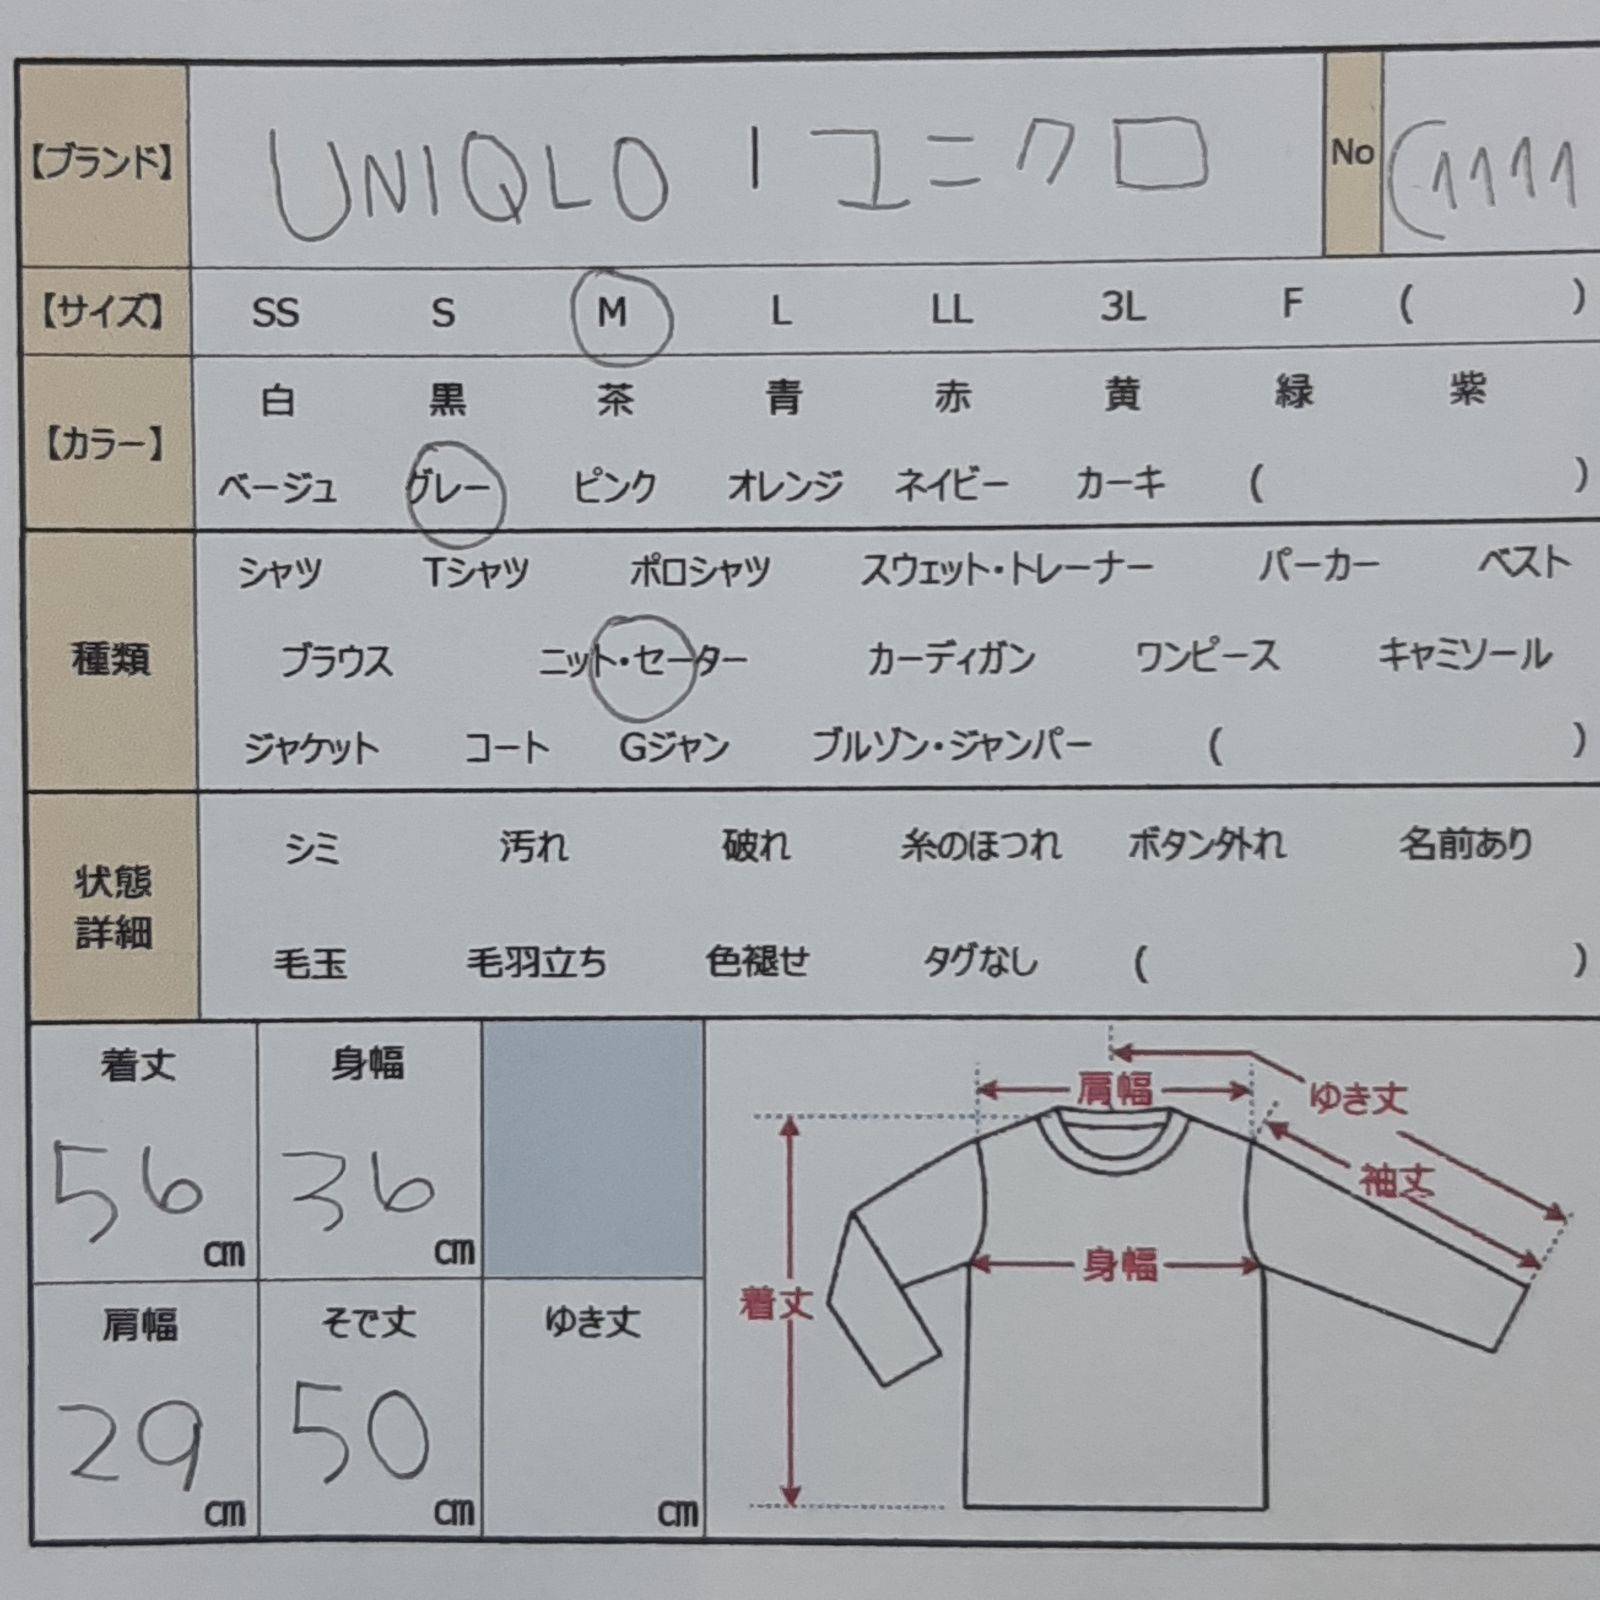 【ブランド】 UNIQLO | ユニクロ No C1111
【サイズ】 SS S M L LL 3L F ( )
白 黒 茶 青 赤 黄 緑 紫
【カラー】
ベージュ グレー ピンク オレンジ ネイビー カーキ ( )
シャツ Tシャツ ポロシャツ スウェット・トレーナー パーカー ベスト
種類 ブラウス ニット・セーター カーディガン ワンピース キャミソール
ジャケット コート Gジャン ブルゾン・ジャンパー ( )
シミ 汚れ 破れ 糸のほつれ ボタン外れ 名前あり
状態
詳細
毛玉 毛羽立ち 色褪せ タグなし ( )
着丈 身幅
56 cm 36 cm
肩幅 そで丈 ゆき丈
29 cm 50 cm cm
肩幅 ゆき丈
袖丈
身幅
着丈